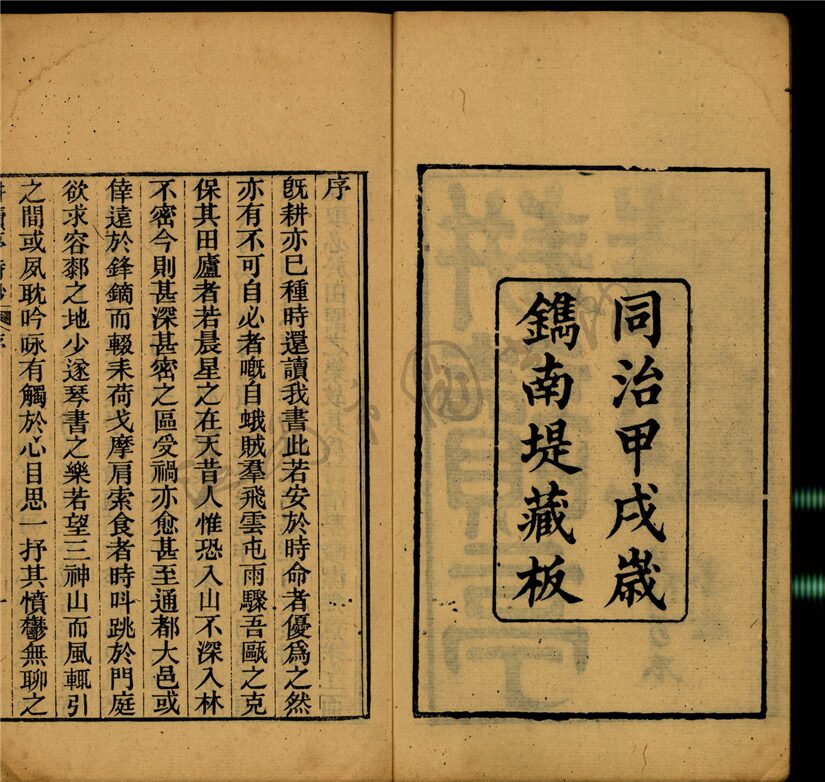 同治甲戌歲
鐫南堤藏板
序
旣耕亦已種時還讀我書此若安於時命者優爲之然
亦有不可自必者嘅自蛾賊羣飛雲屯雨驟吾甌之克
保其田廬者若晨星之在天昔人惟恐入山不深入林
不密今則甚深甚密之區受禍亦愈甚至通都大邑或
倖遠於鋒鏑而輟耒荷戈摩肩索食者時呌跳於門庭
欲求容郄之地少遂琴書之樂若望三神山而風輒引
之間或夙耽吟咏有觸於心目思一抒其憤鬱無聊之
讀 序
一